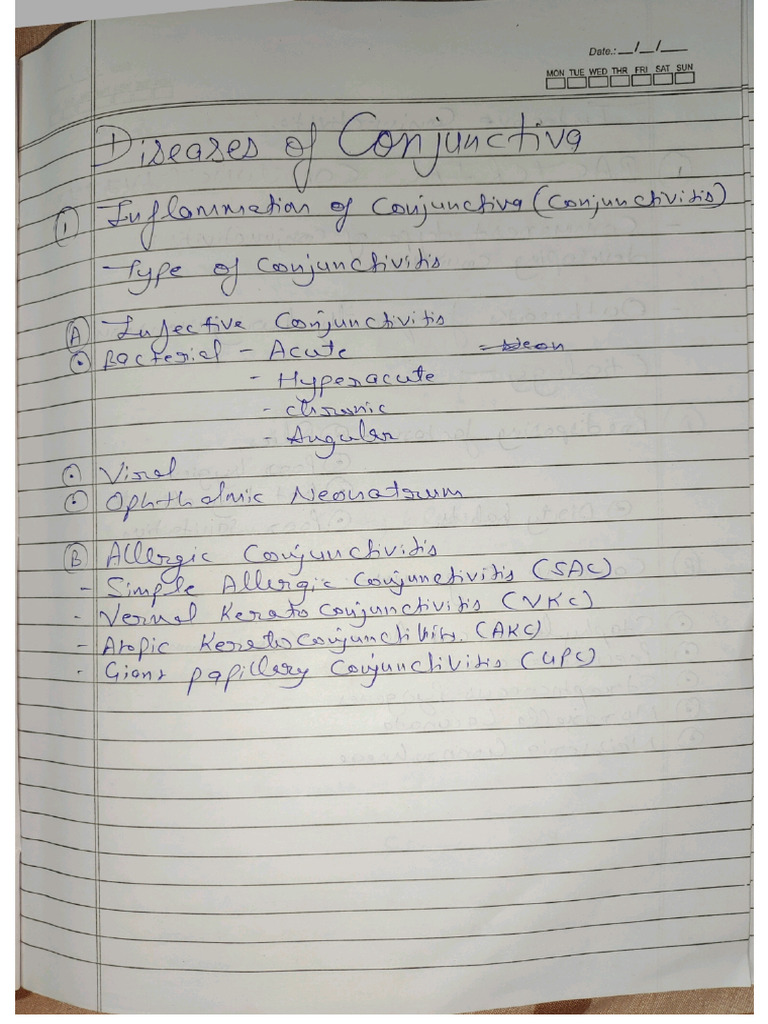 Date.: __/__/__
MON TUE WED THR FRI SAT SUN
Diseases of Conjunctiva
① Inflammation of Conjunctiva (Conjunctivitis)
- Type of Conjunctivitis
Ⓐ Infective Conjunctivitis
⊙ Bacterial - Acute
- Hyperacute
- Chronic
- Angular
⊙ Viral
⊙ Ophthalmic Neonatrum
Ⓑ Allergic Conjunctivitis
- Simple Allergic Conjunctivitis (SAC)
- Vernal Kerato Conjunctivitis (VKC)
- Atopic Kerato Conjunctivitis (AKC)
- Giant papillary Conjunctivitis (GPC)